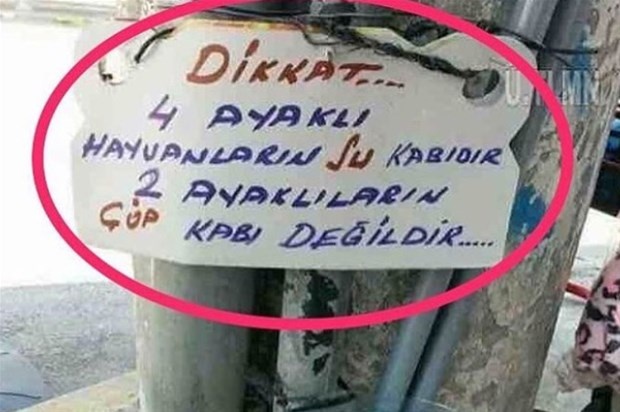 DİKKAT....
4 AYAKLI
HAYVANLARIN SU KABIDIR
2 AYAKLILARIN
ÇÖP KABI DEĞİLDİR.....